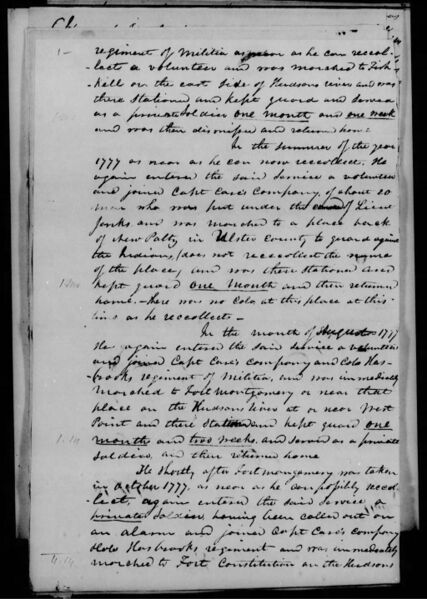 1-
regiment of Militia as near as he can recol-
lect a volunteer and was marched to Fish
kill on the east side of Hudsons river and was
there Stationed and kept guard and served
as a private soldier one month and one week
and was then dismissed and return home
In the summer of the year
1777 as near as he can now reccollect. He
again entered the said service a volunteer
and joined Capt Case's Company, of about 20
men who was put under the of Lieut
Jenks and was marched to a place back
of New Paltz in Ulster County to guard against
the Indians, does not reccollect the name
of the place, and was there Stationed and
kept guard one month and then returned
home - there was no Colo. at this place at this
time as he reccollects -
In the month of August 1777
He again entered the said service a volunteer
and joined Capt Case's Company and Colo Has-
brooks regiment of Militia, and was immediately
Marched to Fort Montgomery or near that
place on the Hudsons river at or near West
Point and there Stationed and kept guard one
month and two weeks, and served as a private
soldier, and then returned home
1-14
He shortly after Fort Montgomery was taken
in October 1777. as near as he can possibly recol-
lect, again entered the said service a
private Soldier, having been called out on
an alarm and joined Capt Case's Company
Colo Hasbrooks regiment and was immediately
marched to Fort Constitution on the Hudsons